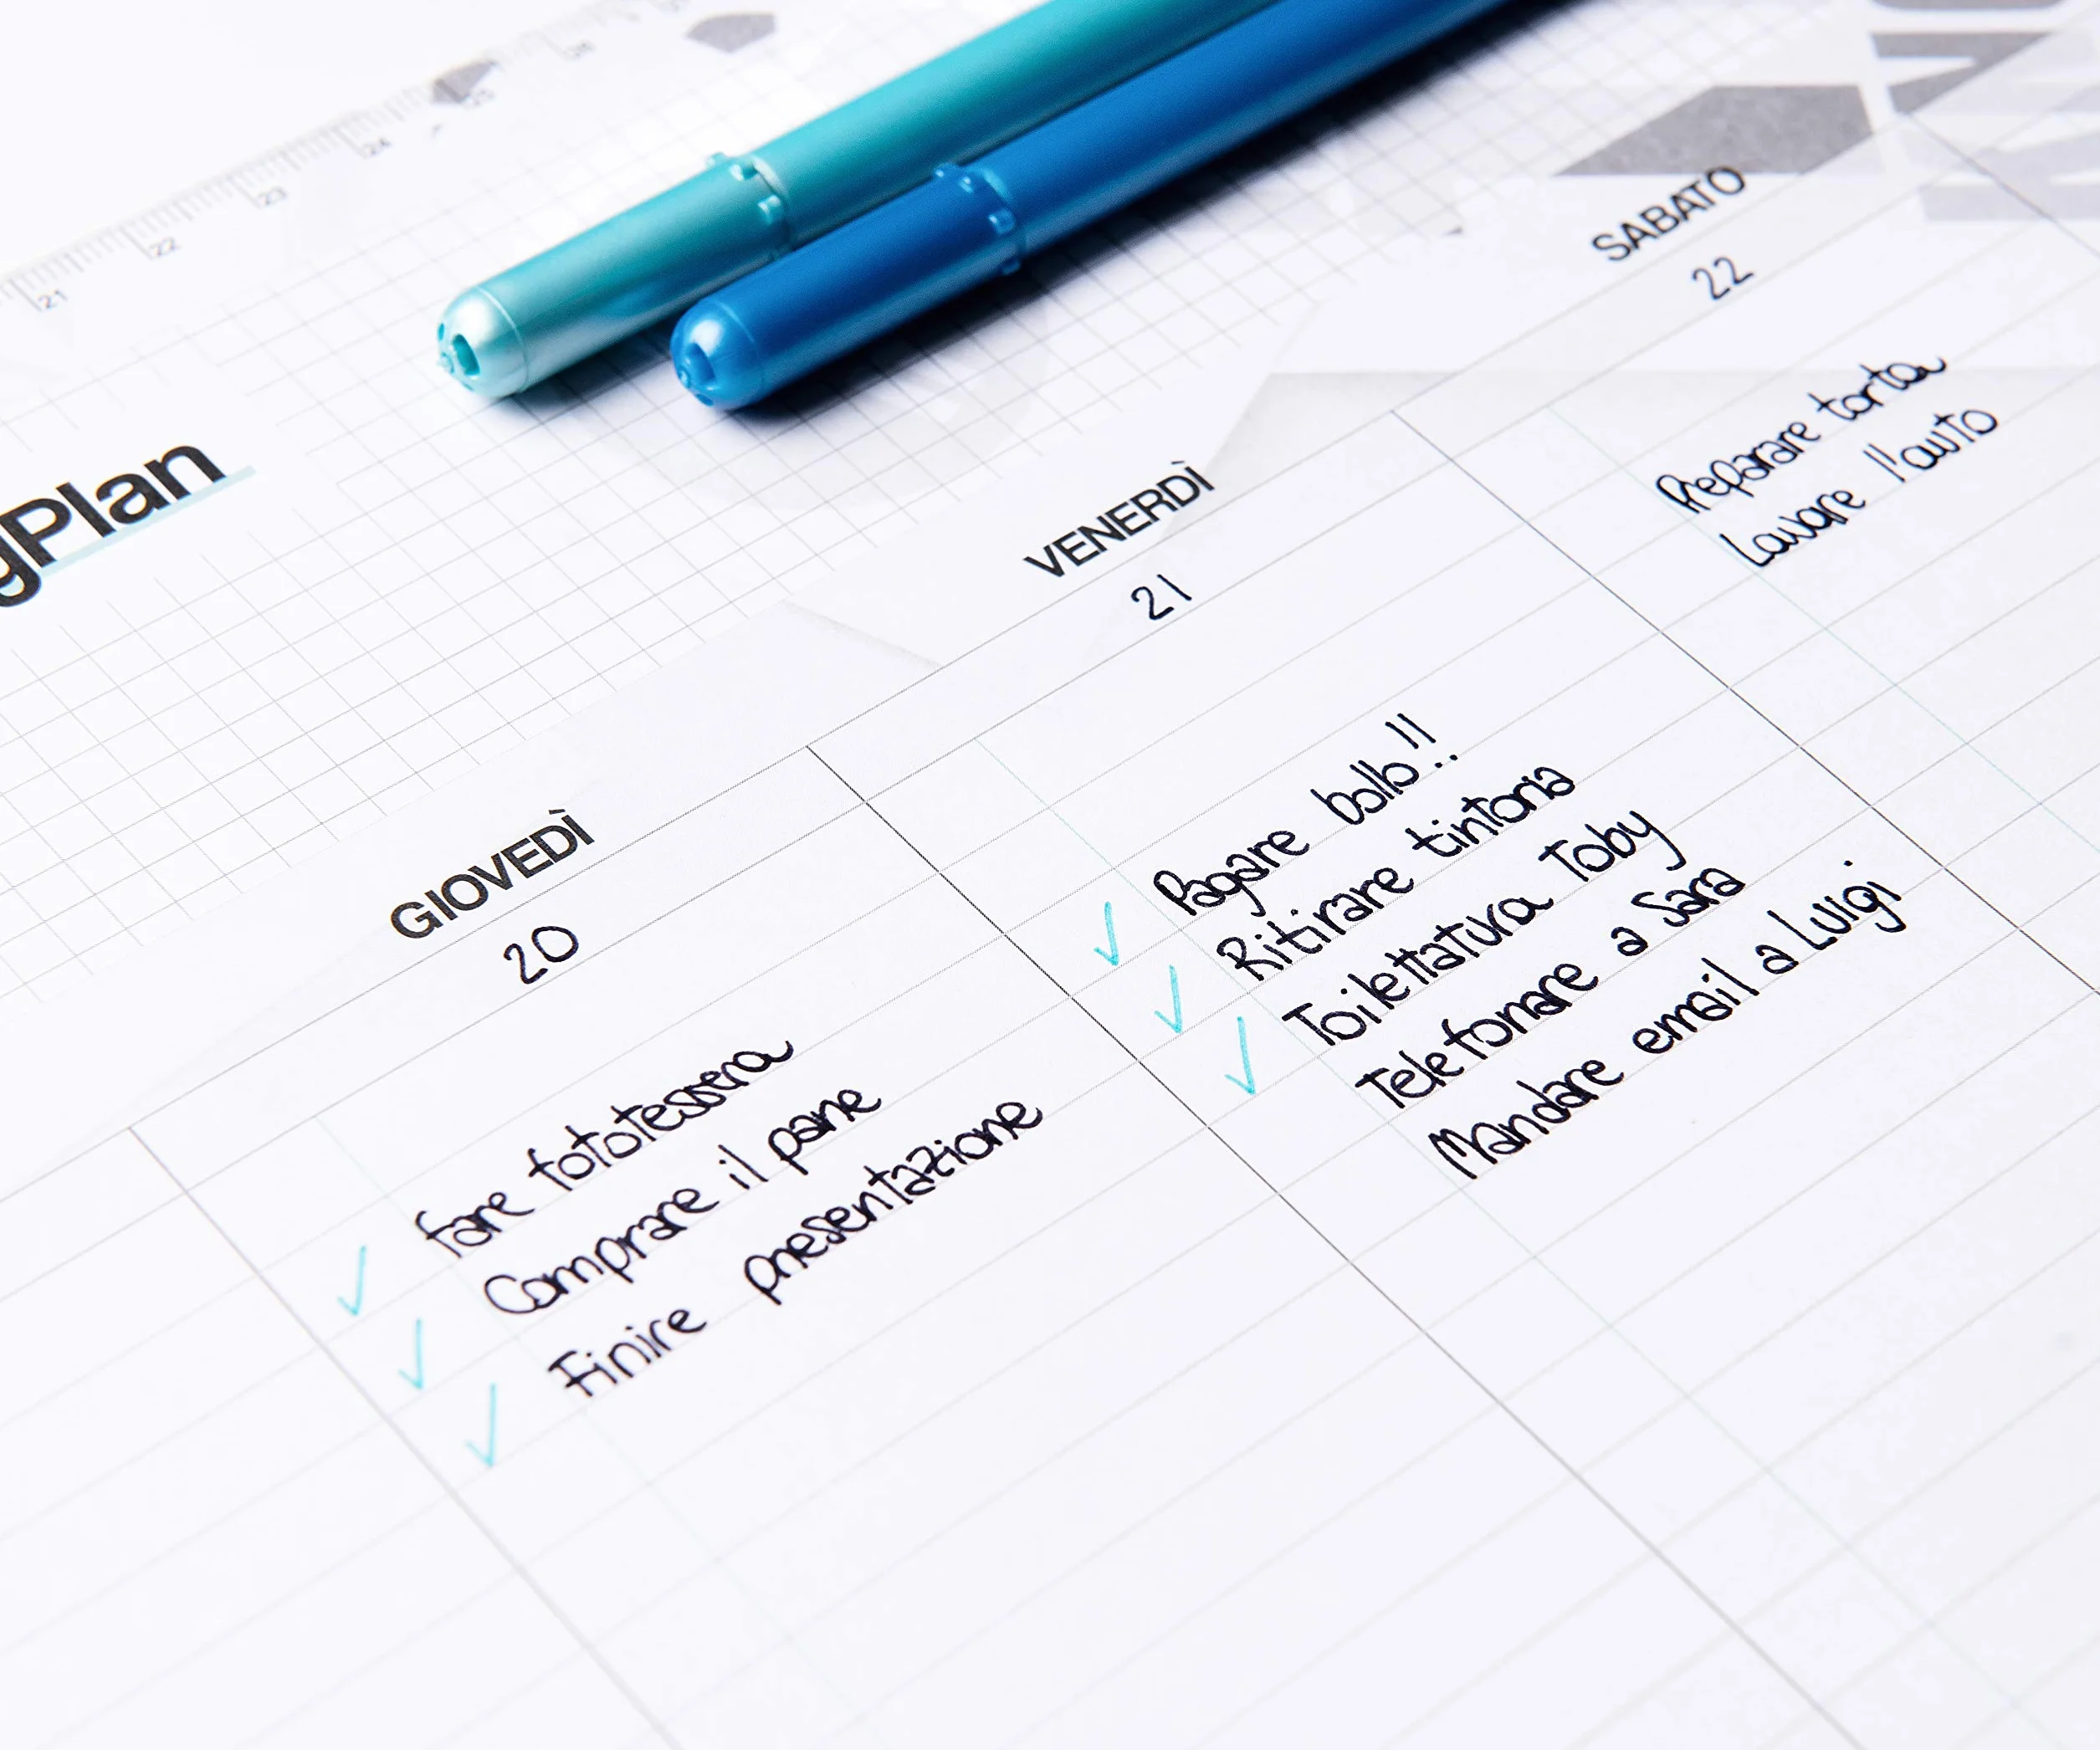 21
22
23
24
25
26
gPlan
GIOVEDÌ
20
fare fototessera
Comprare il pane
Finire presentazione
VENERDÌ
21
Pagare bollo!!
Ritirare tintoria
Toilettatura Toby
Telefonare a Sara
Mandare email a Luigi
SABATO
22
Preparare torta
Lavare l'auto